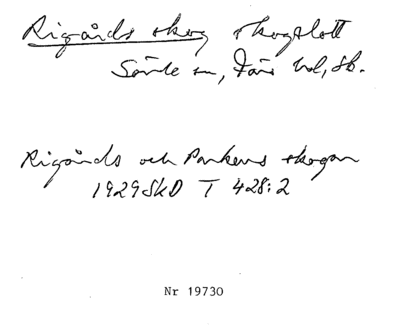 Rigårds skog skogslott
Sövde sn, Färs hd, Sk.
Rigårds och Parkens skogar
1929 SkD T 428:2
Nr 19730